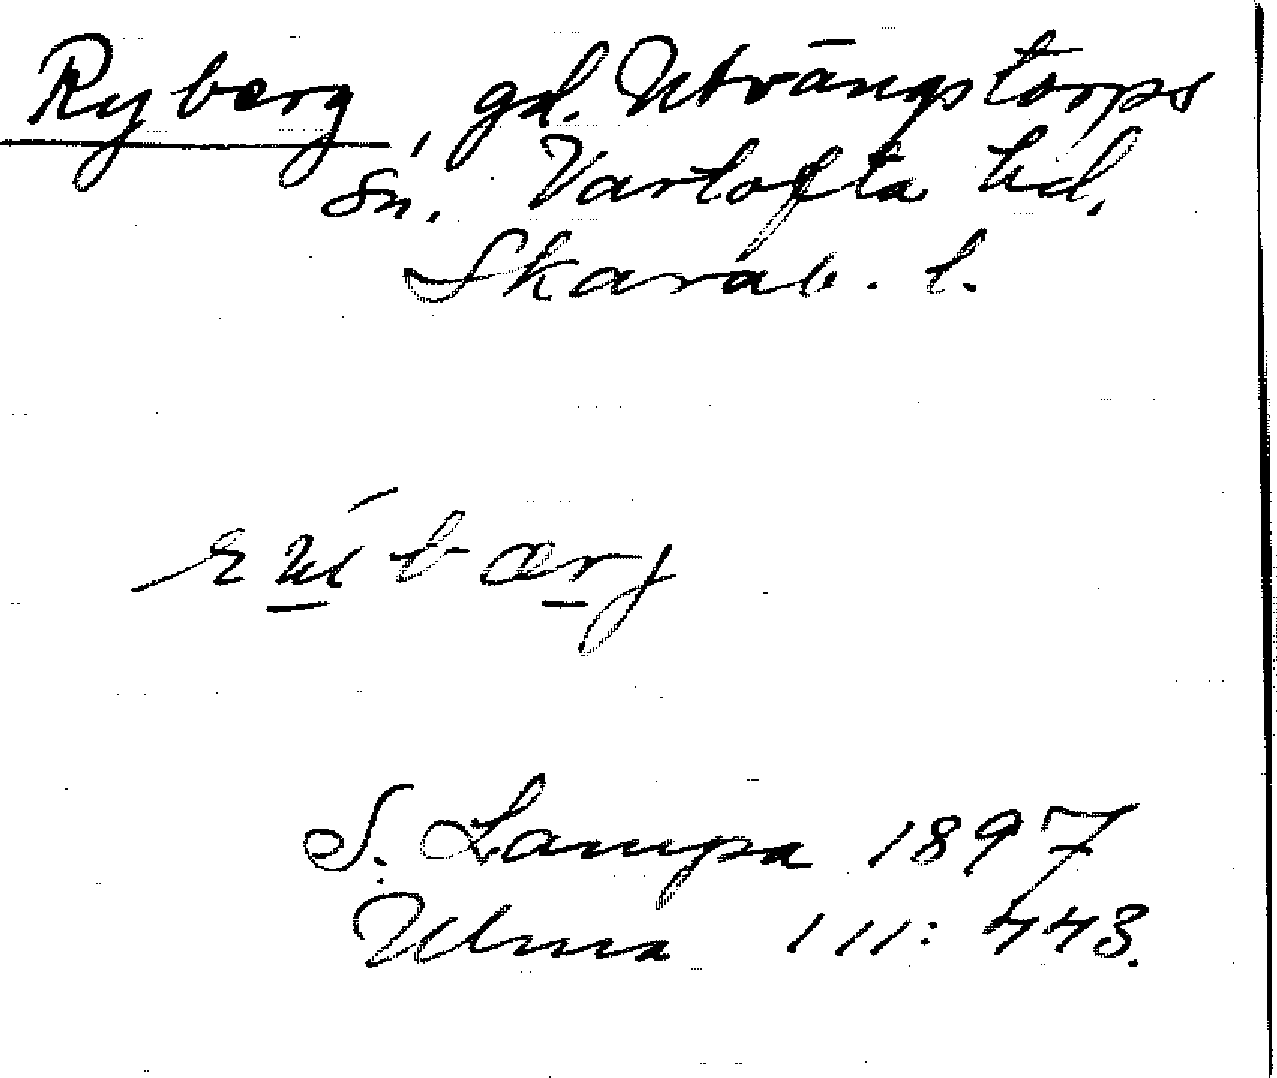 Ryberg, gd. Utvängstorps
sn. Vartofta hd.
Skarab. l.
S. Lampa 1897
Ulma 111: 443.